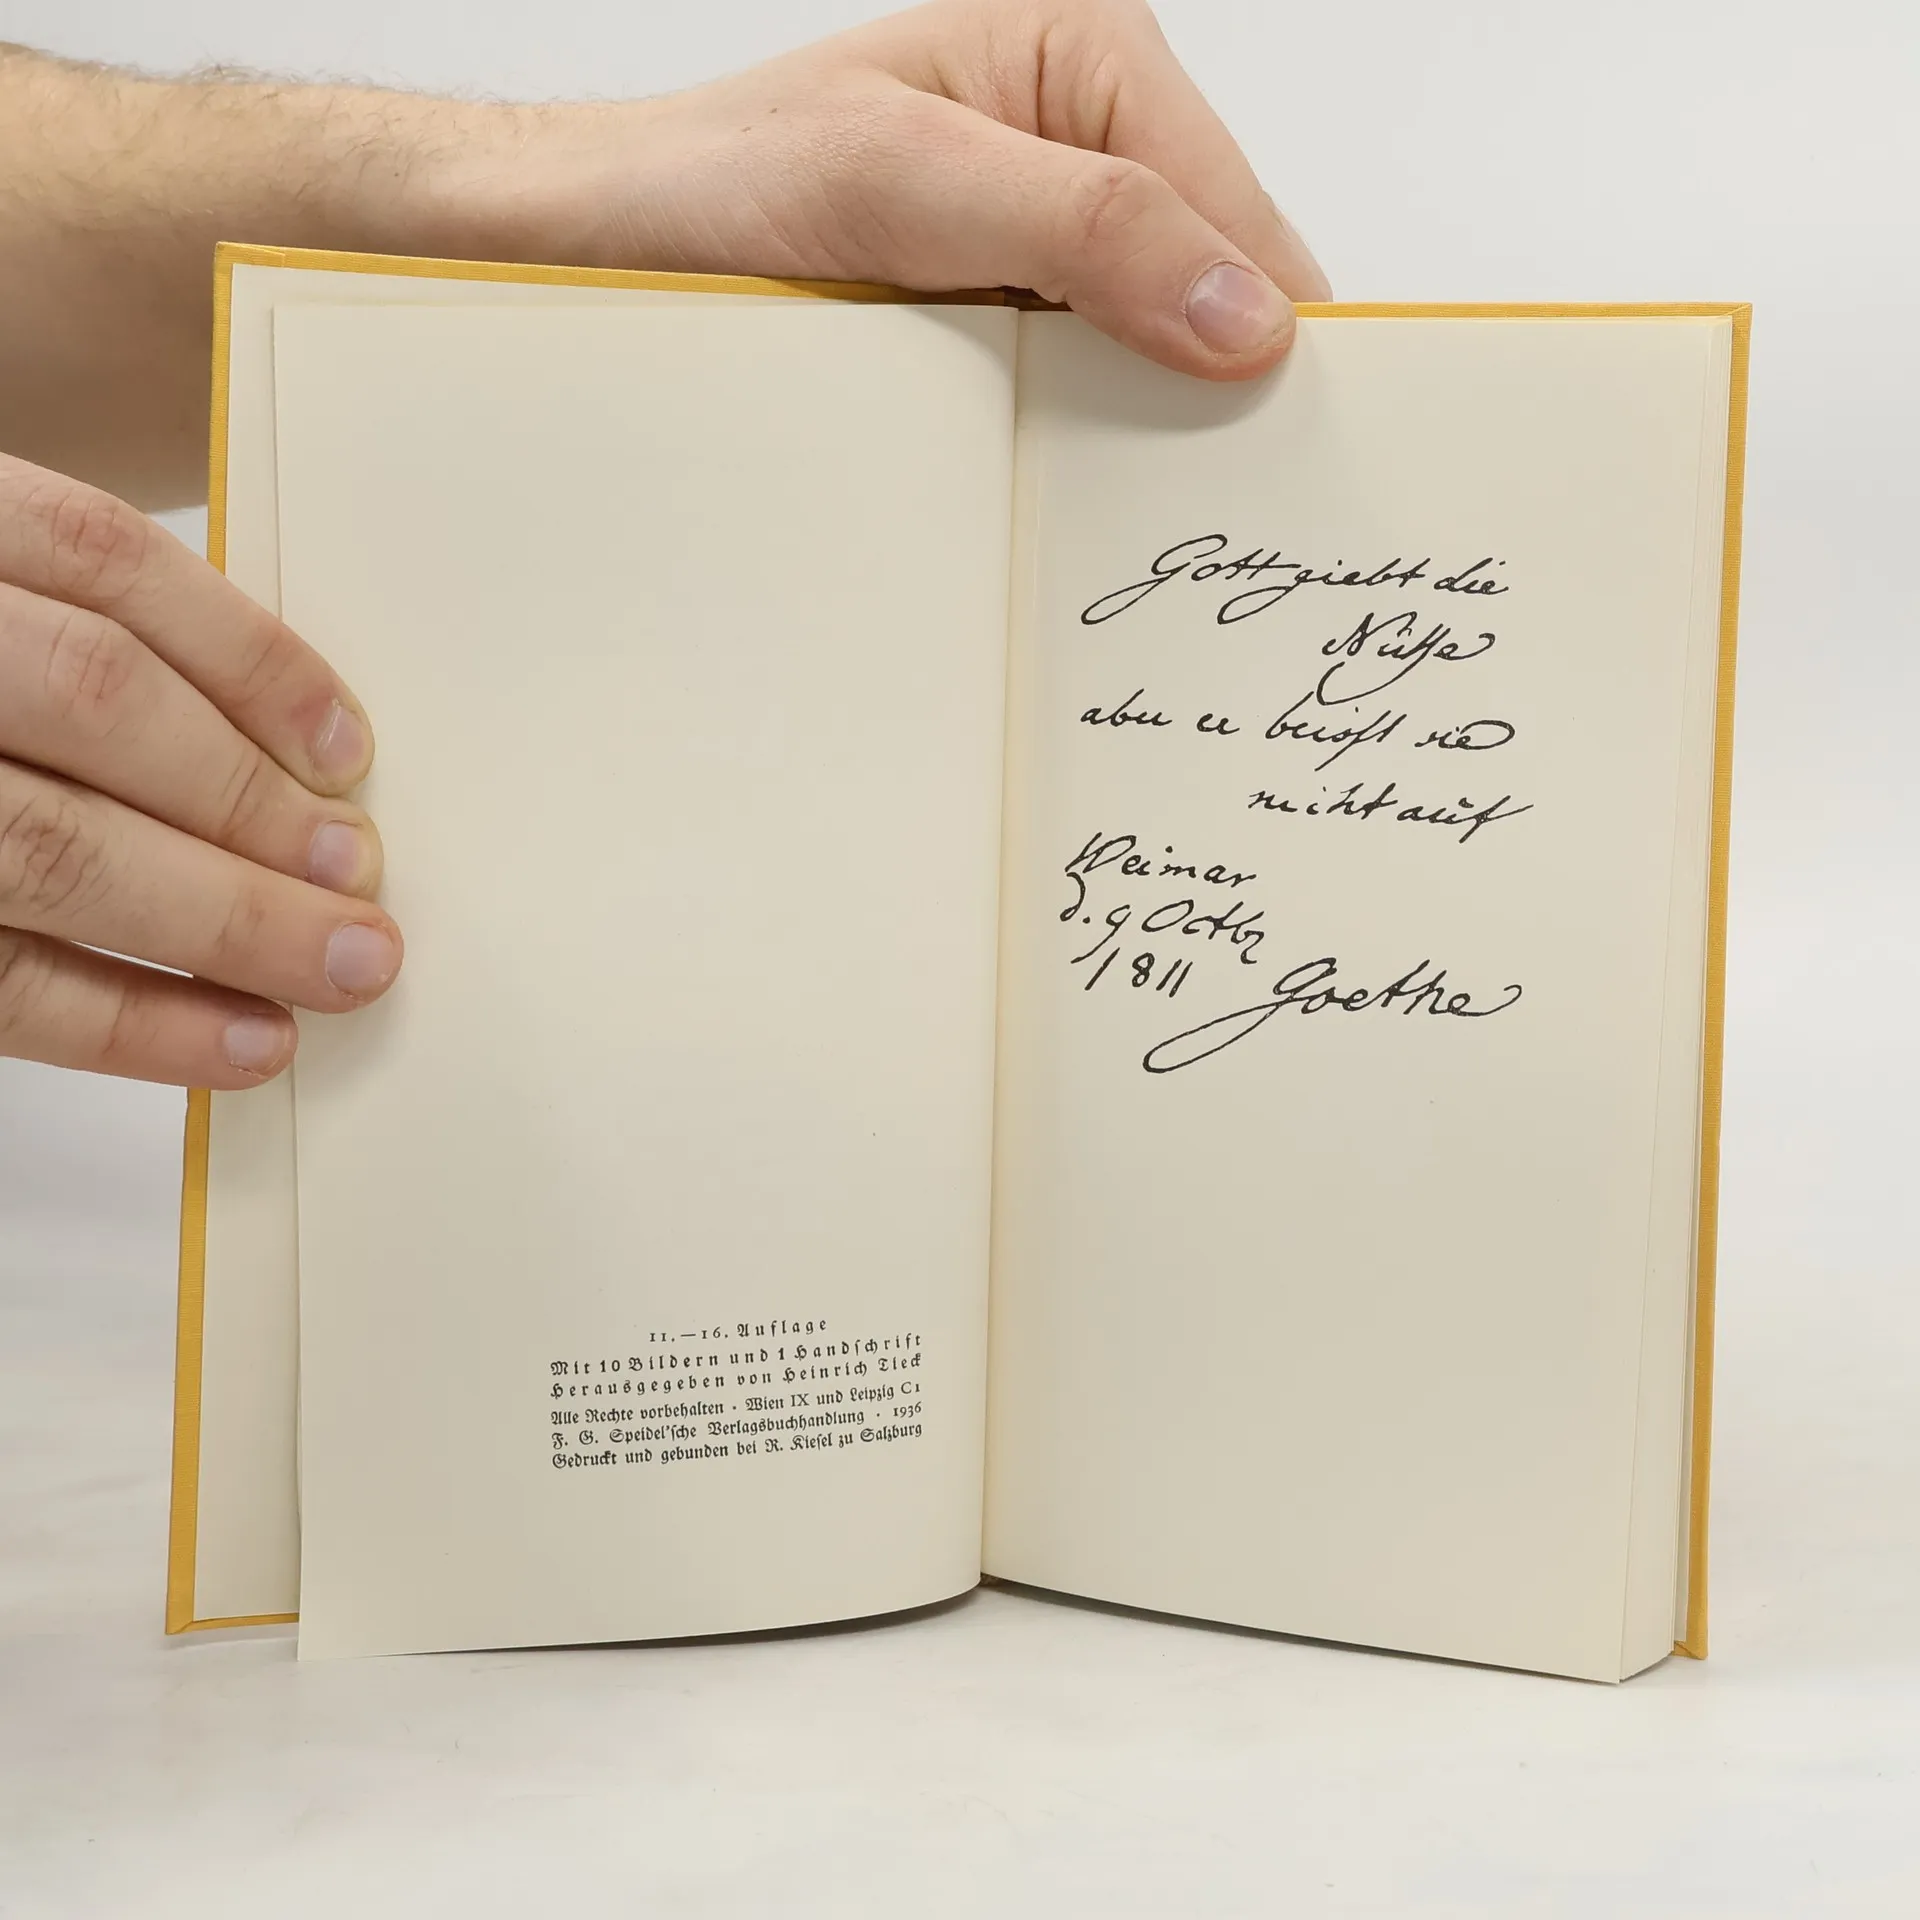 11.—16. Auflage
Mit 10 Bildern und 1 Handschrift
Herausgegeben von Heinrich Tieck
Alle Rechte vorbehalten · Wien IX und Leipzig C1
F. G. Speidel'sche Verlagsbuchhandlung · 1936
Gedruckt und gebunden bei R. Kiesel zu Salzburg
Gott giebt die
Nüsse
aber er beisst sie
nicht auf
Weimar
d. 9 Octbr
1811
Goethe